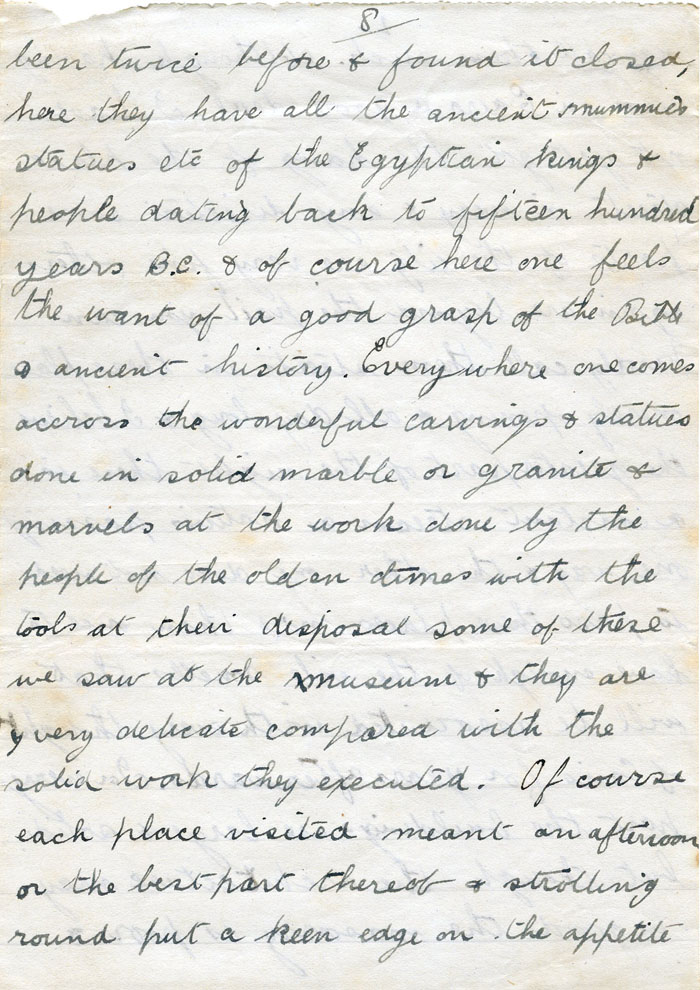 8
been twice before & found it closed,
here they have all the ancient mummies
statues etc of the Egyptian kings &
people dating back to fifteen hundred
years B.C. & of course here one feels
the want of a good grasp of the Bible
& ancient history. Everywhere one comes
accross the wonderful carvings & statues
done in solid marble or granite &
marvels at the work done by the
people of the olden dimes with the
tools at their disposal some of these
we saw at the museum & they are
very delicate compared with the
solid work they executed. Of course
each place visited meant an afternoon
or the best part thereof & strolling
round put a keen edge on the appetite